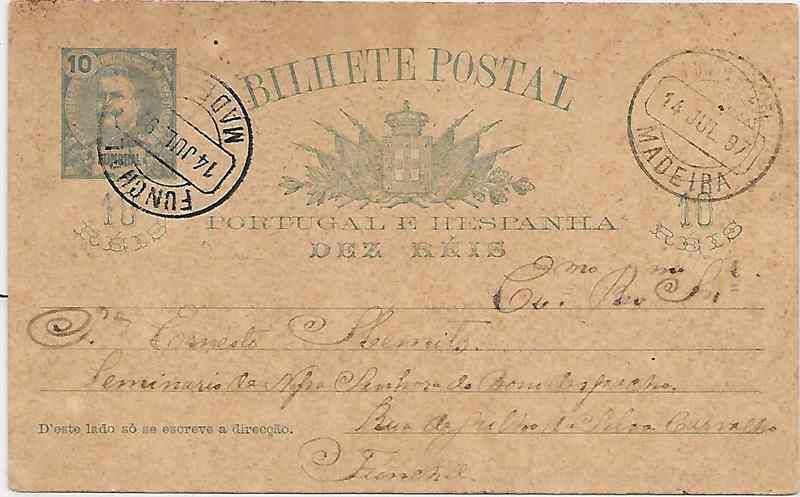 10
FUNCHAL
BILHETE POSTAL
FUNCHAL
14 JUL. 97
MADEIRA
14 JUL. 97
MADEIRA
10 RÉIS
PORTUGAL E HESPANHA
10 RÉIS
DEZ RÉIS
Ex.mo Rev.mo Snr.
Ernesto Schmitz.
Seminario da Nossa Senhora do Bom
Rua da Silva Carvalho
D'este lado só se escreve a direcção.
Funchal